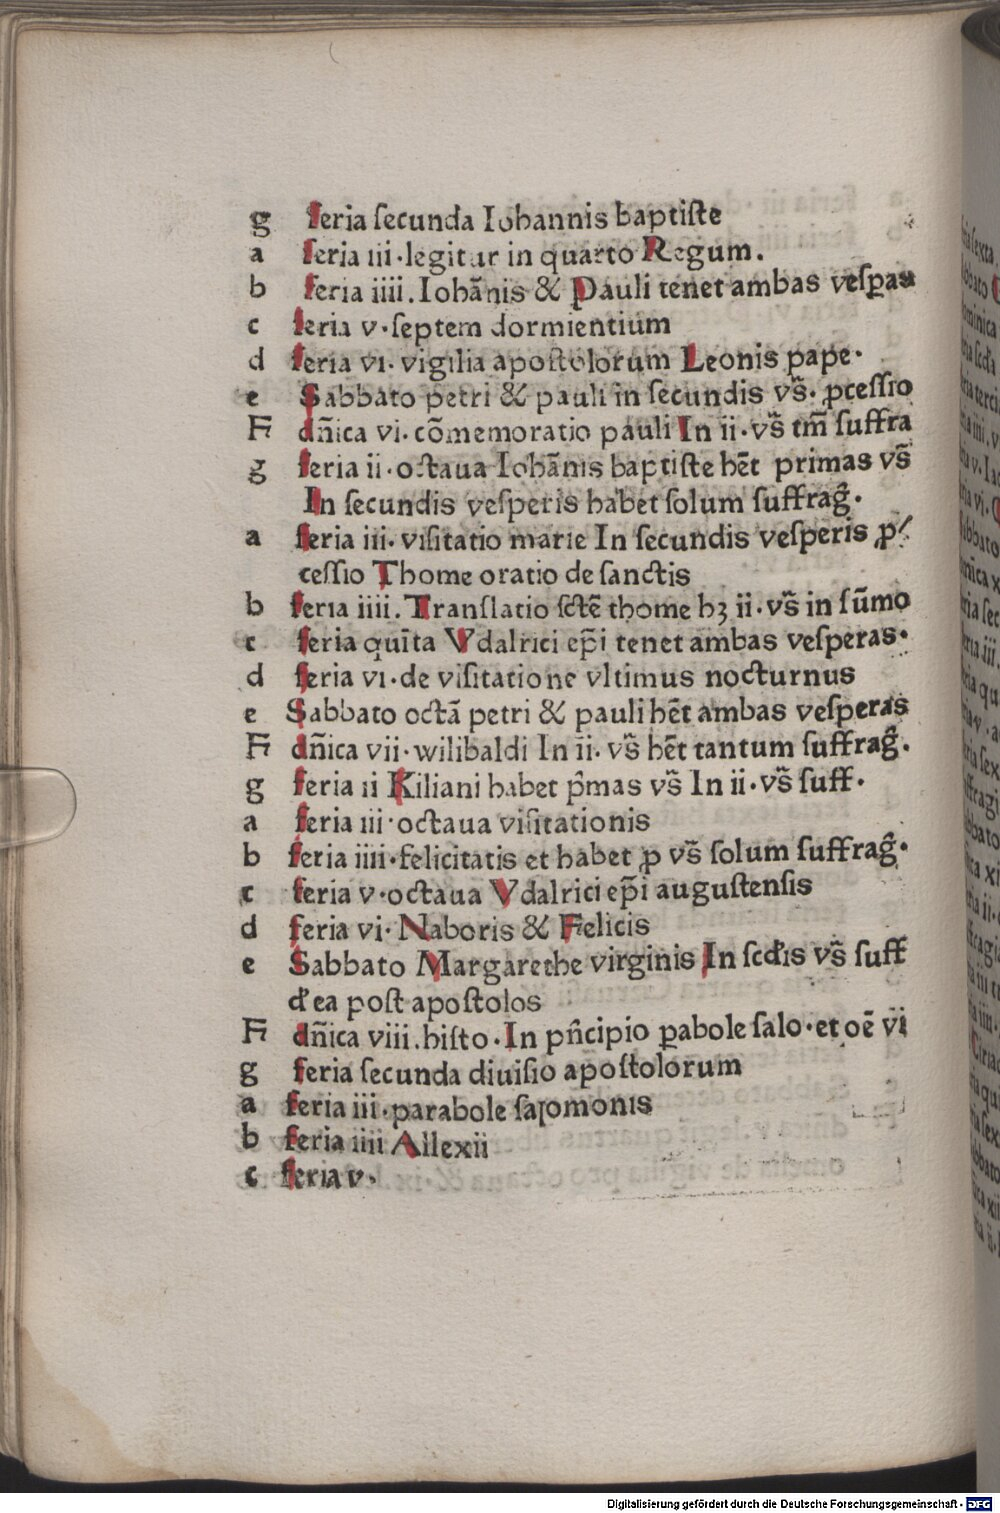 g feria ſecunda Iohannis baptiſte
a feria iii·legitur in quarto Regum.
b feria iiii. Iohãnis & Pauli tenet ambas veſꝑas
c feria v·ſeptem dormientium
d feria vi· vigilia apoſtolorum Leonis pape·
e Sabbato petri & pauli in ſecundis vs̃· ꝓceſſio
F dñica vi· cõmemoratio pauli In ii·vs̃ tm̃ ſuffra
g feria ii·octaua Iohãnis baptiſte hẽt primas vs̃
In ſecundis veſperis habet ſolum ſuffrag̃·
a feria iii· viſitatio marie In ſecundis veſperis ꝓ⸗
ceſſio Thome oratio de ſanctis
b feria iiii. Tranſlatio ſctẽ thome hꝫ ii·vs̃ in ſũmo
c feria quĩta Vdalrici ep̃i tenet ambas veſperas·
d feria vi·de viſitatione vltimus nocturnus
e Sabbato octã petri & pauli hẽt ambas veſperas
F dñica vii·wilibaldi In ii. vs̃ hẽt tantum ſuffrag̃·
g feria ii Kiliani habet p̃mas vs̃ In ii·vs̃ ſuff·
a feria iii·octaua viſitationis
b feria iiii·felicitatis et habet ꝓ vs̃ ſolum ſuffrag̃·
c feria v·octaua Vdalrici ep̃i auguſtenſis
d feria vi·Naboris & Felicis
e Sabbato Margarethe virginis In ſcd̃is vs̃ ſuff̃
d' ea poſt apoſtolos
F dñica viii.hiſto·In pñcipio ꝑabole ſalo·et oẽ vi
g feria ſecunda diuiſio apoſtolorum
a feria iii·parabole ſalomonis
b feria iiii Allexii
c feria v·
Digitalisierung gefördert durch die Deutsche Forschungsgemeinschaft - DFG